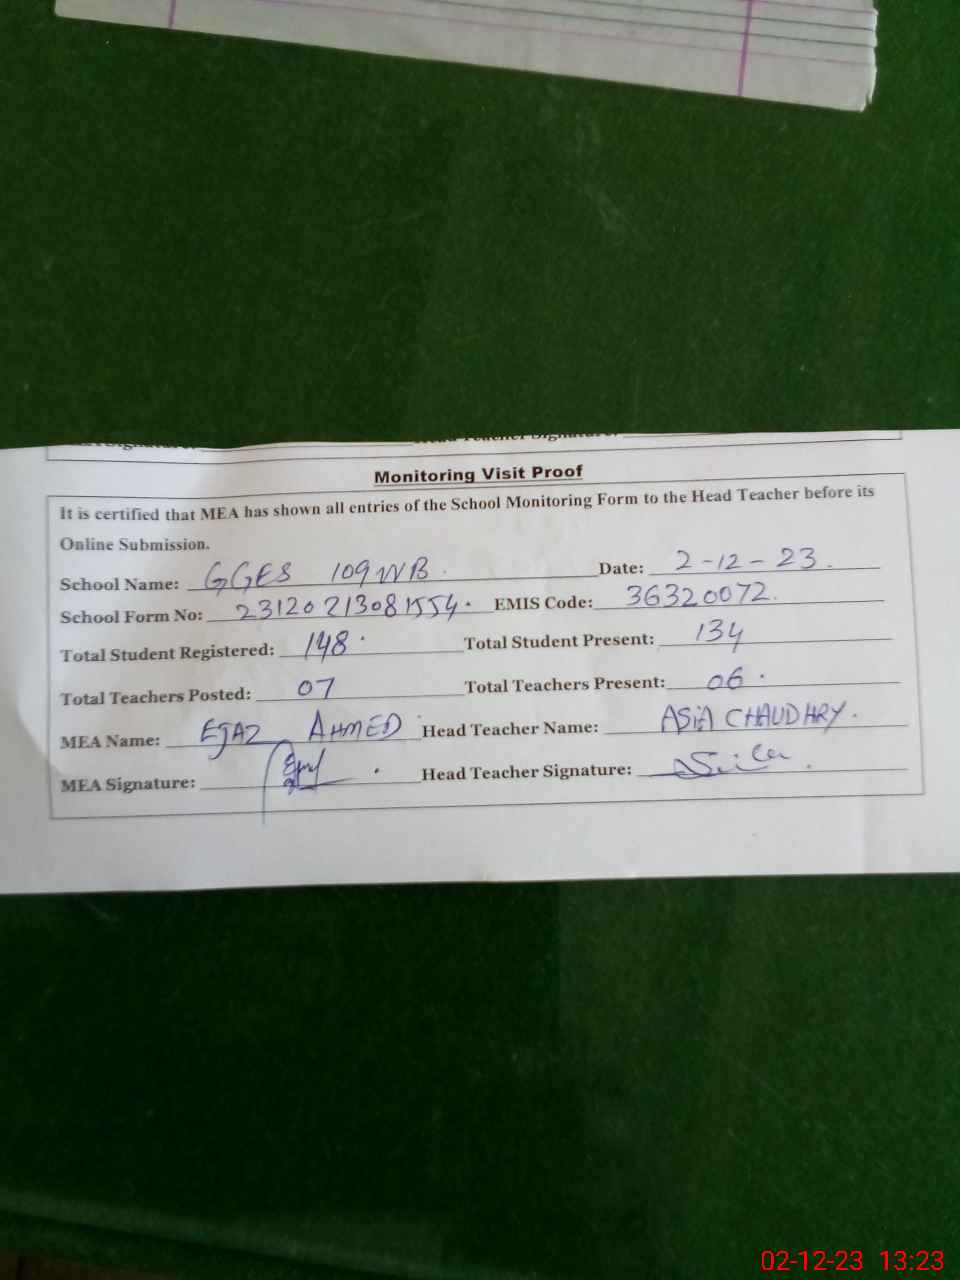 Monitoring Visit Proof
It is certified that MEA has shown all entries of the School Monitoring Form to the Head Teacher before its
Online Submission.
School Name: GGES 109 WB. Date: 2-12-23.
School Form No: 23120213081554. EMIS Code: 36320072.
Total Student Registered: 148. Total Student Present: 134
Total Teachers Posted: 07 Total Teachers Present: 06.
MEA Name: EJAZ AHMED. Head Teacher Name: ASiA CHAUDHRY.
MEA Signature: Head Teacher Signature:
02-12-23 13:23